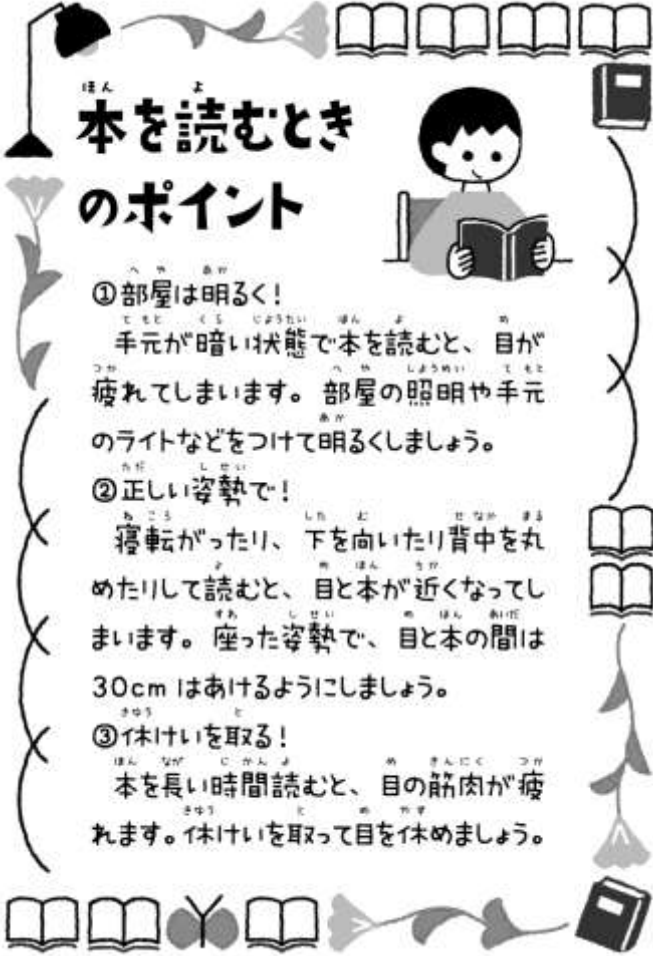 本を読むとき
のポイント
①部屋は明るく！
手元が暗い状態で本を読むと、目が
疲れてしまいます。部屋の照明や手元
のライトなどをつけて明るくしましょう。
②正しい姿勢で！
寝転がったり、下を向いたり背中を丸
めたりして読むと、目と本が近くなってし
まいます。座った姿勢で、目と本の間は
30cm はあけるようにしましょう。
③休けいを取る！
本を長い時間読むと、目の筋肉が疲
れます。休けいを取って目を休めましょう。